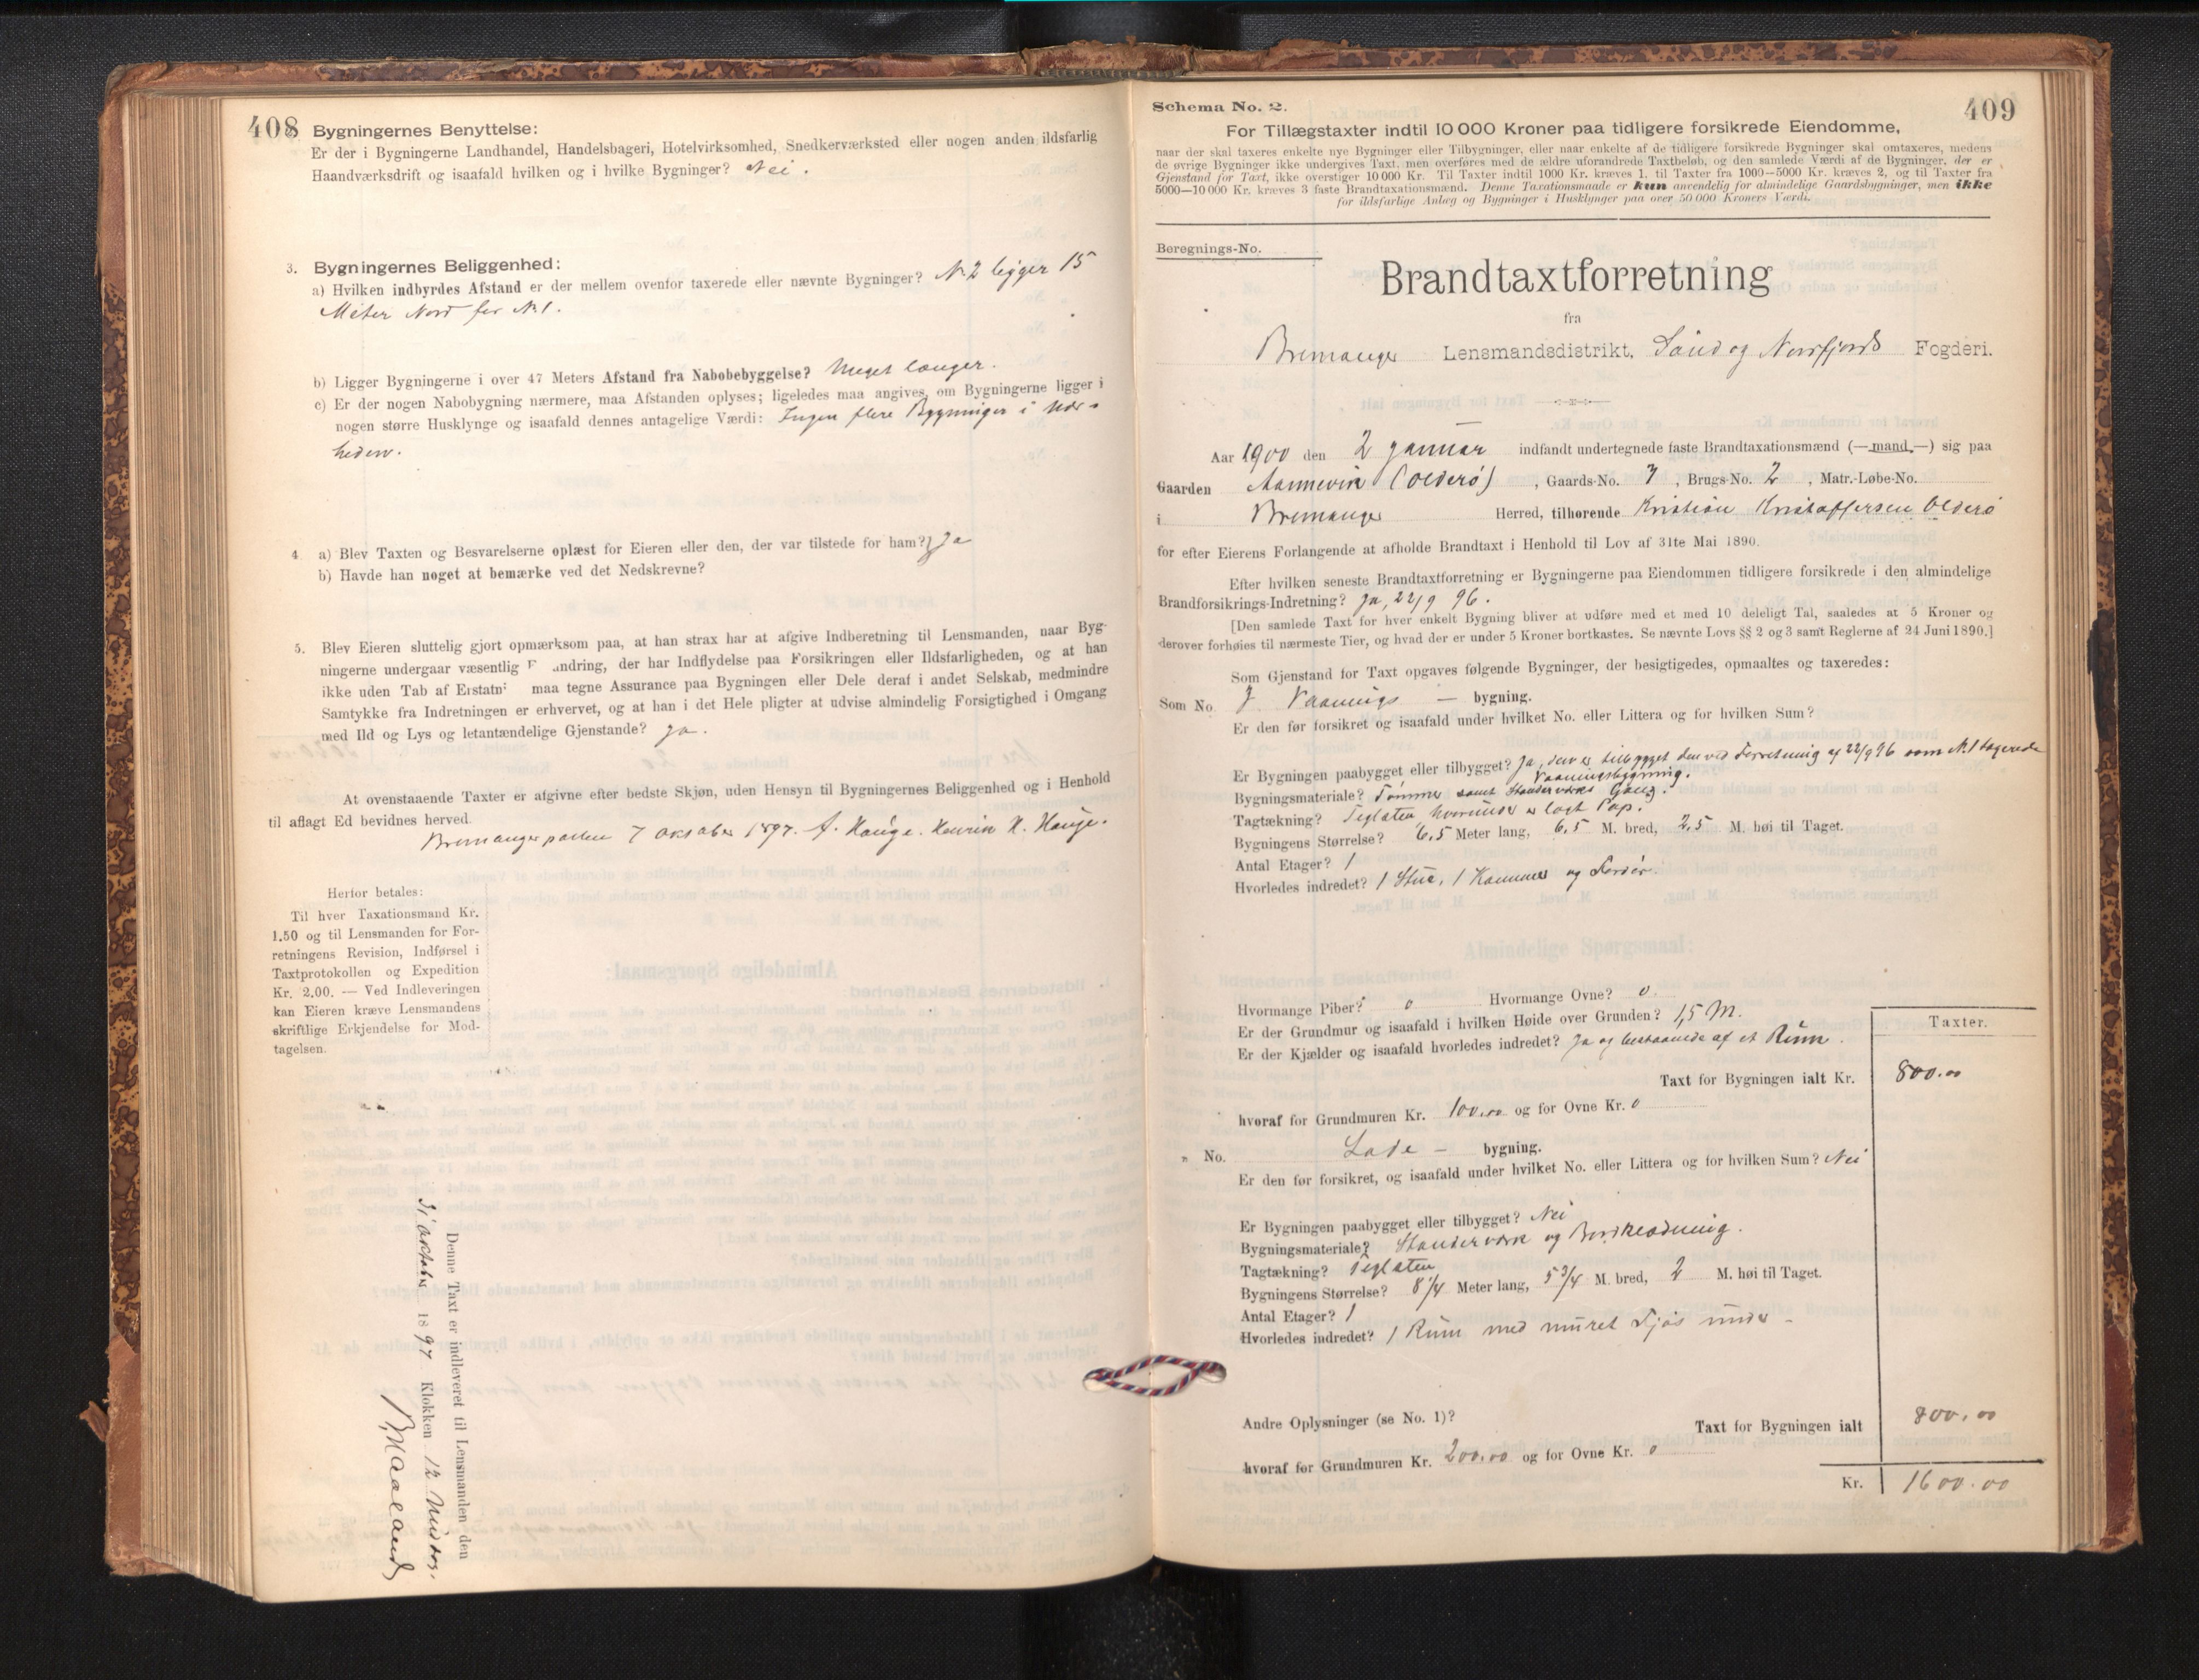 408
Bygningernes Benyttelse:
Er der i Bygningerne Landhandel, Handelsbageri, Hotelvirksomhed, Snedkerværksted eller nogen anden ildsfarlig
Haandværksdrift og isaafald hvilken og i hvilke Bygninger? Nei.
3. Bygningernes Beliggenhed:
a) Hvilken indbyrdes Afstand er der mellem ovenfor taxerede eller nævnte Bygninger? No 2 ligger 15
Meter Nord for No 1.
b) Ligger Bygningerne i over 47 Meters Afstand fra Nabobebyggelse? Meget længer.
c) Er der nogen Nabobygning nærmere, maa Afstanden oplyses; ligeledes maa angives, om Bygningerne ligger i
nogen større Husklynge og isaafald dennes antagelige Værdi: Ingen flere Bygninger i Nær-
heden.
4. a) Blev Taxten og Besvarelserne oplæst for Eieren eller den, der var tilstede for ham? } Ja
b) Havde han noget at bemærke ved det Nedskrevne?
5. Blev Eieren sluttelig gjort opmærksom paa, at han strax har at afgive Indberetning til Lensmanden, naar Byg-
ningerne undergaar væsentlig F andring, der har Indflydelse paa Forsikringen eller Ildsfarligheden, og at han
ikke uden Tab af Erstatn maa tegne Assurance paa Bygningen eller Dele deraf i andet Selskab, medmindre
Samtykke fra Indretningen er erhvervet, og at han i det Hele pligter at udvise almindelig Forsigtighed i Omgang
med Ild og Lys og letantændelige Gjenstande? Ja.
At ovenstaaende Taxter er afgivne efter bedste Skjøn, uden Hensyn til Bygningernes Beliggenhed og i Henhold
til aflagt Ed bevidnes herved.
Bremangerpollen 7 Oktober 1897. A. Hauge. Henrik H. Hauge.
Herfor betales:
Til hver Taxationsmand Kr.
1.50 og til Lensmanden for For-
retningens Revision, Indførsel i
Taxtprotokollen og Expedition
Kr. 2.00. — Ved Indleveringen
kan Eieren kræve Lensmandens
skriftlige Erkjendelse for Mod-
tagelsen.
Denne Taxt er indleveret til Lensmanden den
31 Oktober 1897 Klokken 12 Middag.
B. Maaland
Schema No. 2.
409
For Tillægstaxter indtil 10 000 Kroner paa tidligere forsikrede Eiendomme,
naar der skal taxeres enkelte nye Bygninger eller Tilbygninger, eller naar enkelte af de tidligere forsikrede Bygninger skal omtaxeres, medens
de øvrige Bygninger ikke undergives Taxt, men overføres med de ældre uforandrede Taxtbeløb, og den samlede Værdi af de Bygninger, der er
Gjenstand for Taxt, ikke overstiger 10 000 Kr. Til Taxter indtil 1000 Kr. kræves 1, til Taxter fra 1000—5000 Kr. kræves 2, og til Taxter fra
5000—10 000 Kr. kræves 3 faste Brandtaxationsmænd. Denne Taxationsmaade er kun anvendelig for almindelige Gaardsbygninger, men ikke
for ildsfarlige Anlæg og Bygninger i Husklynger paa over 50 000 Kroners Værdi.
Beregnings-No.
Brandtaxtforretning
fra
Bremanger Lensmandsdistrikt, Sønd og Nordfjords Fogderi.
Aar 1900 den 2 Januar indfandt undertegnede faste Brandtaxationsmænd (—mand.—) sig paa
Gaarden Aannevik (Olderø), Gaards-No. 7, Brugs-No. 2, Matr.-Løbe-No.
i Bremanger Herred, tilhørende Kristian Kristoffersen Olderø
for efter Eierens Forlangende at afholde Brandtaxt i Henhold til Lov af 31te Mai 1890.
Efter hvilken seneste Brandtaxtforretning er Bygningerne paa Eiendommen tidligere forsikrede i den almindelige
Brandforsikrings-Indretning? Ja, 22/9 96.
[Den samlede Taxt for hver enkelt Bygning bliver at udføre med et med 10 deleligt Tal, saaledes at 5 Kroner og
derover forhøies til nærmeste Tier, og hvad der er under 5 Kroner bortkastes. Se nævnte Lovs §§ 2 og 3 samt Reglerne af 24 Juni 1890.]
Som Gjenstand for Taxt opgaves følgende Bygninger, der besigtigedes, opmaaltes og taxeredes:
Som No. Vaanings — bygning.
Er den før forsikret og isaafald under hvilket No. eller Littera og for hvilken Sum?
Er Bygningen paabygget eller tilbygget? Ja, den er tilbygget den ved Forretning af 22/9 96 som No 1 taxerede
Vaaningsbygning.
Bygningsmateriale? Tømmer samt Standerværks Gang.
Tagtækning? Teglsten, hvorunder er lagt Pap.
Bygningens Størrelse? 6,5 Meter lang, 6,5 M. bred, 2,5 M. høi til Taget.
Antal Etager? 1
Hvorledes indredet? 1 Stue, 1 Kammer og Fordør.
Hvormange Piber? 0 Hvormange Ovne? 0.
Er der Grundmur og isaafald i hvilken Høide over Grunden? 1,5 M.
Er der Kjælder og isaafald hvorledes indredet? Ja og bestaaende af et Rum.
Taxter.
Taxt for Bygningen ialt Kr. 800.00
hvoraf for Grundmuren Kr. 100.00 og for Ovne Kr. 0
" No. Lade — bygning.
Er den før forsikret, og isaafald under hvilket No. eller Littera og for hvilken Sum? Nei
Er Bygningen paabygget eller tilbygget? Nei
Bygningsmateriale? Standerværk og Bordklædning.
Tagtækning? Teglsten
Bygningens Størrelse? 8 1/4 Meter lang, 5 3/4 M. bred, 2 M. høi til Taget.
Antal Etager? 1
Hvorledes indredet? 1 Rum med muret Fjøs under -
Andre Oplysninger (se No. 1)?
Taxt for Bygningen ialt 800.00
hvoraf for Grundmuren Kr. 200.00 og for Ovne Kr. 0
Kr. 1600.00